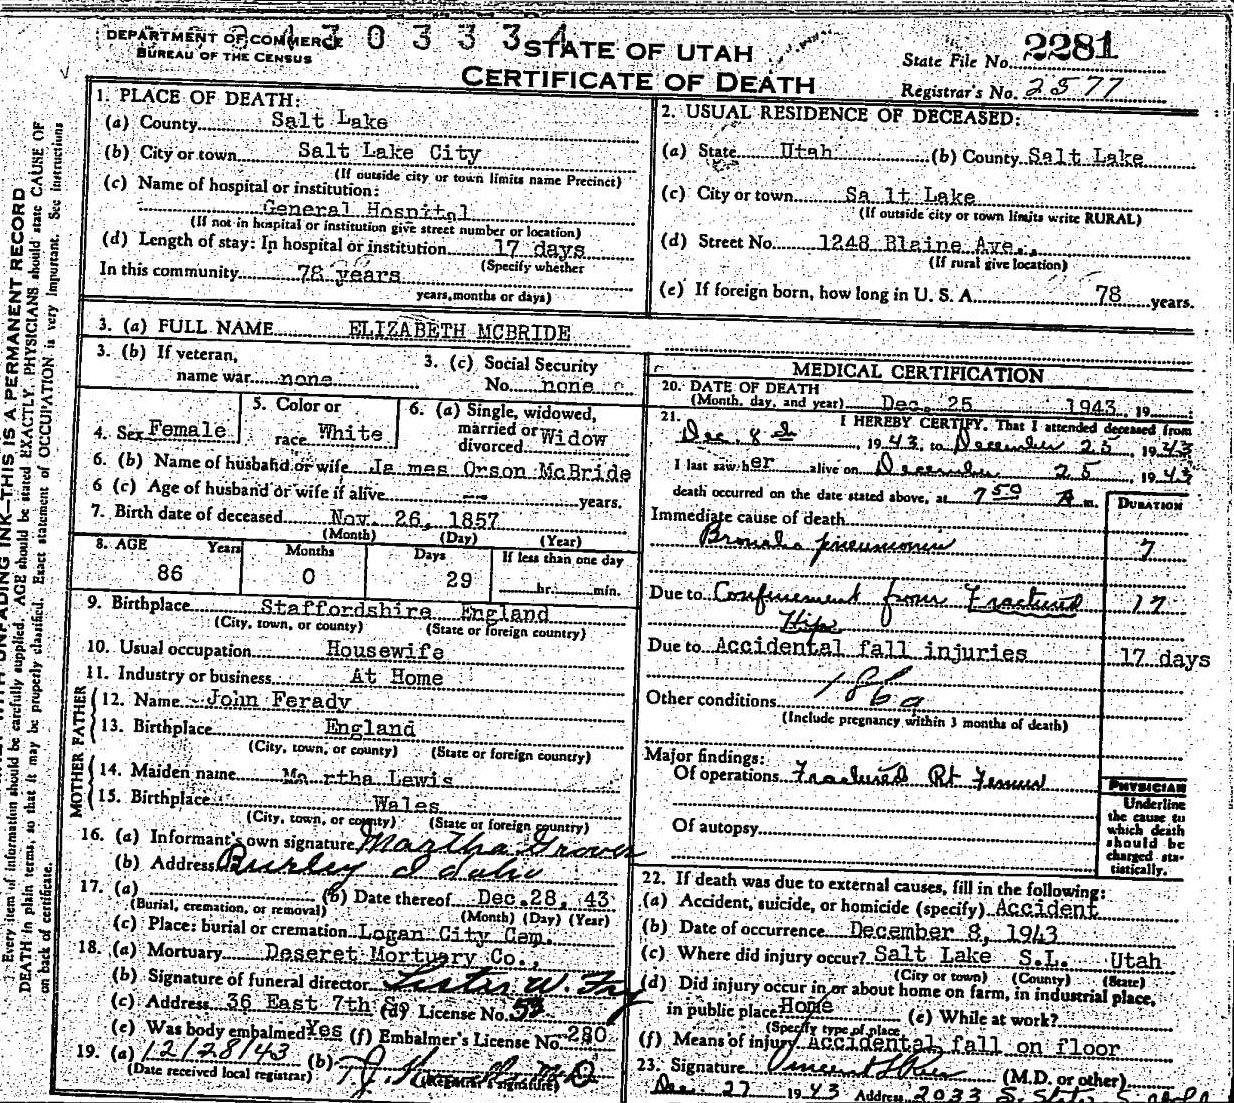 DEPARTMENT OF COMMERCE
BUREAU OF THE CENSUS
STATE OF UTAH
CERTIFICATE OF DEATH
State File No. 2281
Registrar's No. 2577
1. PLACE OF DEATH:
(a) County Salt Lake
(b) City or town Salt Lake City
(If outside city or town limits name Precinct)
(c) Name of hospital or institution:
General Hospital
(If not in hospital or institution give street number or location)
(d) Length of stay: In hospital or institution 17 days
(Specify whether
In this community 78 years
years, months or days)
2. USUAL RESIDENCE OF DECEASED:
(a) State Utah (b) County Salt Lake
(c) City or town Sa lt Lake
(If outside city or town limits write RURAL)
(d) Street No. 1248 Blaine Ave.,
(If rural give location)
(e) If foreign born, how long in U. S. A. 78 years.
3. (a) FULL NAME ELIZABETH MCBRIDE
3. (b) If veteran, name war none
3. (c) Social Security No. none
4. Sex Female
5. Color or race White
6. (a) Single, widowed, married or divorced Widow
6. (b) Name of husband or wife Ja mes Orson McBride
6 (c) Age of husband or wife if alive -- years.
7. Birth date of deceased Nov. 26, 1857
(Month) (Day) (Year)
8. AGE Years Months Days If less than one day
86 0 29 hr. min.
9. Birthplace Staffordshire England
(City, town, or county) (State or foreign country)
10. Usual occupation Housewife
11. Industry or business At Home
FATHER
12. Name John Ferady
13. Birthplace England
(City, town, or county) (State or foreign country)
MOTHER
14. Maiden name Ma rtha Lewis
15. Birthplace Wales
(City, town, or county) (State or foreign country)
16. (a) Informant's own signature Martha Grover
(b) Address Burley Idaho
17. (a) (b) Date thereof Dec.28, 43
(Burial, cremation, or removal) (Month) (Day) (Year)
(c) Place: burial or cremation Logan City Cem.
18. (a) Mortuary Deseret Mortuary Co.,
(b) Signature of funeral director
(c) Address 36 East 7th So (d) License No.
(e) Was body embalmed Yes (f) Embalmer's License No. 280
19. (a) 12/28/43 (b)
(Date received local registrar) (Registrar's signature)
MEDICAL CERTIFICATION
20. DATE OF DEATH
(Month, day, and year) Dec. 25 1943, 19
21. I HEREBY CERTIFY, That I attended deceased from
Dec. 8 1943, to December 25, 1943
I last saw her alive on December 25, 1943
death occurred on the date stated above, at 7 50 A m.
DURATION
Immediate cause of death
Broncho pneumonia 7
Due to Confinement from Fractured 17
Hip
Due to Accidental fall injuries 17 days
186a
Other conditions
(Include pregnancy within 3 months of death)
Major findings:
Of operations Fractured Rt Femur
Of autopsy
PHYSICIAN
Underline
the cause to
which death
should be
charged sta-
tistically.
22. If death was due to external causes, fill in the following:
(a) Accident, suicide, or homicide (specify) Accident
(b) Date of occurrence December 8, 1943
(c) Where did injury occur? Salt Lake S.L. Utah
(City or town) (County) (State)
(d) Did injury occur in or about home on farm, in industrial place,
in public place Home (e) While at work?
(Specify type of place
(f) Means of injury Accidental fall on floor
23. Signature (M.D. or other)
Dec. 27 1943 Address 2033 S. State
THIS IS A PERMANENT RECORD
Every item of information should be carefully supplied. AGE should be stated EXACTLY. PHYSICIANS should state CAUSE OF
DEATH in plain terms, so that it may be properly classified. Exact statement of OCCUPATION is very important. See Instructions
on back of certificate.